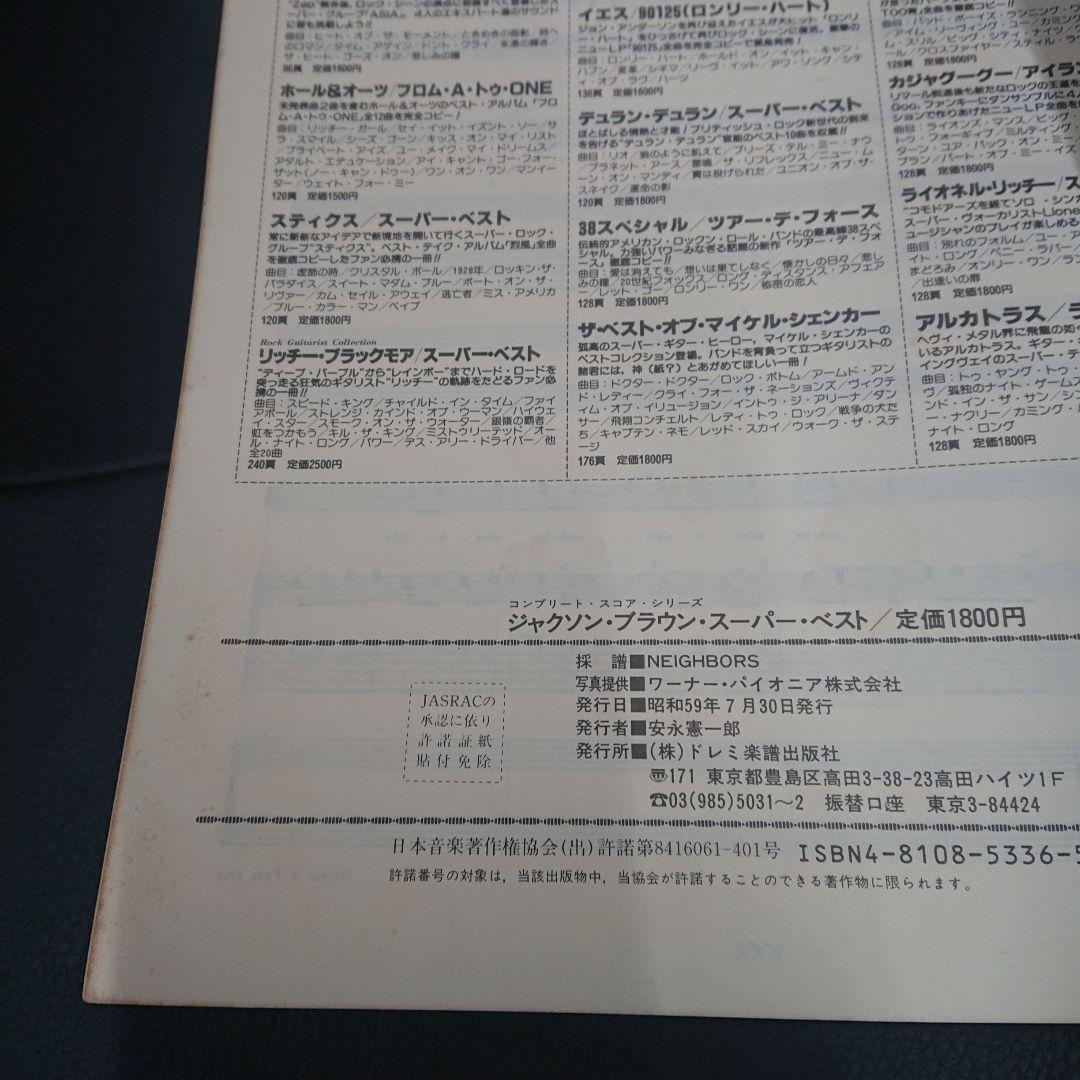 スーパー・グループ「ASIA」。4人のエキスパート達のサウンド
に君も挑戦しよう!!
曲目：ヒート・オブ・ザ・モーメント／ときめきの面影／時へ
のロマン／タイム・アゲイン／ドント・クライ／永遠の輝き
／ザ・ヒート・ゴーズ・オン／悲しみの瞳
96頁 定価1600円
ホール&オーツ／フロム・A・トゥ・ONE
未発表曲2曲を含むホール&オーツのベスト・アルバム「フロ
ム・A・トゥ・ONE」全12曲を完全コピー！
曲目：リッチ・ガール／セイ・イット・イズント・ソー／サ
ラ・スマイル／シーズ・ゴーン／キッス・オン・マイ・リスト
／プライベート・アイズ／ユー・メイク・マイ・ドリームス／
アダルト・エデュケーション／アイ・キャント・ゴー・フォー・
ザット(ノー・キャン・ドゥー)／ワン・オン・ワン／マンイー
ター／ウェイト・フォー・ミー
120頁 定価1500円
スティクス／スーパー・ベスト
常に斬新なアイデアで新境地を開いて行くスーパー・ロック・
グループ“スティクス”。ベスト・テイク・アルバム「烈風」全曲
を徹底コピーしたファン必携の一冊!!
曲目：虚飾の時／クリスタル・ボール／1928年／ロッキン・ザ・
パラダイス／スイート・マダム・ブルー／ボート・オン・ザ・
リヴァー／カム・セイル・アウェイ／逃亡者／ミス・アメリカ
／ブルー・カラー・マン／ベイブ
120頁 定価1800円
Rock Guitarist Collection
リッチー・ブラックモア／スーパー・ベスト
“ディープ・パープル”から“レインボー”までハード・ロードを
突っ走る狂気のギタリスト“リッチー”の軌跡をたどるファン必
携の一冊!!
曲目：スピード・キング／チャイルド・イン・タイム／ファイ
アボール／ストレンジ・カインド・オブ・ウーマン／ハイウェ
イ・スター／スモーク・オン・ザ・ウォーター／銀嶺の覇者／
虹をつかもう／キル・ザ・キング／ミストゥリーテッド／オー
ル・ナイト・ロング／パワー／デス・アリー・ドライバー／他
全20曲
240頁 定価2500円
イエス／90125(ロンリー・ハート)
ジョン・アンダーソンを再び迎えたイエスが大ヒット「ロンリ
ー・ハート」をひっさげて再びロック・シーンに復活。衝撃の
ニューLP「90125」全曲を完全コピーで緊急発売！
曲目：ロンリー・ハート／ホールド・オン／イット・キャン・
ハプン／変革／シネマ／リーヴ・イット／アワ・ソング／シテ
ィ・オブ・ラヴ／ハーツ
136頁 定価1600円
デュラン・デュラン／スーパー・ベスト
ほとばしる情熱と才能！ブリティッシュ・ロック新世代の到来
を告げる“デュラン・デュラン”官能のベスト10曲を収載!!
曲目：リオ／狼のように飢えて／プリーズ・テル・ミー・ナウ
／プラネット・アース／雷鳴／ザ・リフレックス／ニュー・ム
ーン・オン・マンディ／賽は投げられた／ユニオン・オブ・ザ・
スネイク／運命の影
120頁 定価1800円
38スペシャル／ツアー・デ・フォース
伝統的アメリカン・ロックン・ロール・バンドの最高峰38スペ
シャル。力強いパワーみなぎる話題の新作「ツアー・デ・フォ
ース」徹底コピー!!
曲目：愛は消えても／想いは果てしなく／懐かしの日々／悲し
みの瞳／20世紀フォックス／ロング・ディスタンス・アフェア
ー／レット・ゴー／ロンリー・ワン／秘密の恋人
128頁 定価1800円
ザ・ベスト・オブ・マイケル・シェンカー
孤高のスーパー・ギター・ヒーロー，マイケル・シェンカーの
ベストコレクション登場。バンドを背負って立つギタリストの
諸君には，神（紙？）とあがめてほしい一冊！
曲目：ドクター・ドクター／ロック・ボトム／アームド・アン
ド・レディー／クライ・フォー・ザ・ネーションズ／ヴィクテ
ィム・オブ・イリュージョン／イントゥ・ジ・アリーナ／ダン
サー／飛翔コンチェルト／レディ・トゥ・ロック／戦争の犬た
ち／キャプテン・ネモ／レッド・スカイ／ウォーク・ザ・ステ
ージ
176頁 定価1800円
128頁 定価1800円
カジャグーグー／アイラン
128頁 定価1800円
ライオネル・リッチー／ス
“コモドアーズを経てソロ・シンガ
スーパー・ヴォーカリストLione
ュージシャンのプレイが楽しめる
曲目：別れのフォルム／ユー・ア
イト・ロング／ペニー・ラバー／
まどろみ／オンリー・ワン／ラン
／出逢いの扉
128頁 定価1800円
アルカトラス／ラ
ヘヴィ・メタル界に飛龍の如く
いるアルカトラス。ギター・ヒ
イングヴェイのスーパー・テ
曲目：トゥ・ヤング・トゥ・
ヴ／孤独のナイト・ゲームス
ンド・イン・ザ・サン／シ
ー・ナクリー／カミング・
ナイト・ロング
128頁 定価1800円
コンプリート・スコア・シリーズ
ジャクソン・ブラウン・スーパー・ベスト／定価1800円
JASRACの
承認に依り
許諾証紙
貼付免除
採 譜■NEIGHBORS
写真提供■ワーナー・パイオニア株式会社
発行日■昭和59年7月30日発行
発行者■安永憲一郎
発行所■(株)ドレミ楽譜出版社
〠171 東京都豊島区高田3-38-23高田ハイツ1F
☎03(985)5031～2 振替口座 東京3-84424
日本音楽著作権協会(出)許諾第8416061-401号 ISBN4-8108-5336-5
許諾番号の対象は，当該出版物中，当協会が許諾することのできる著作物に限られます。